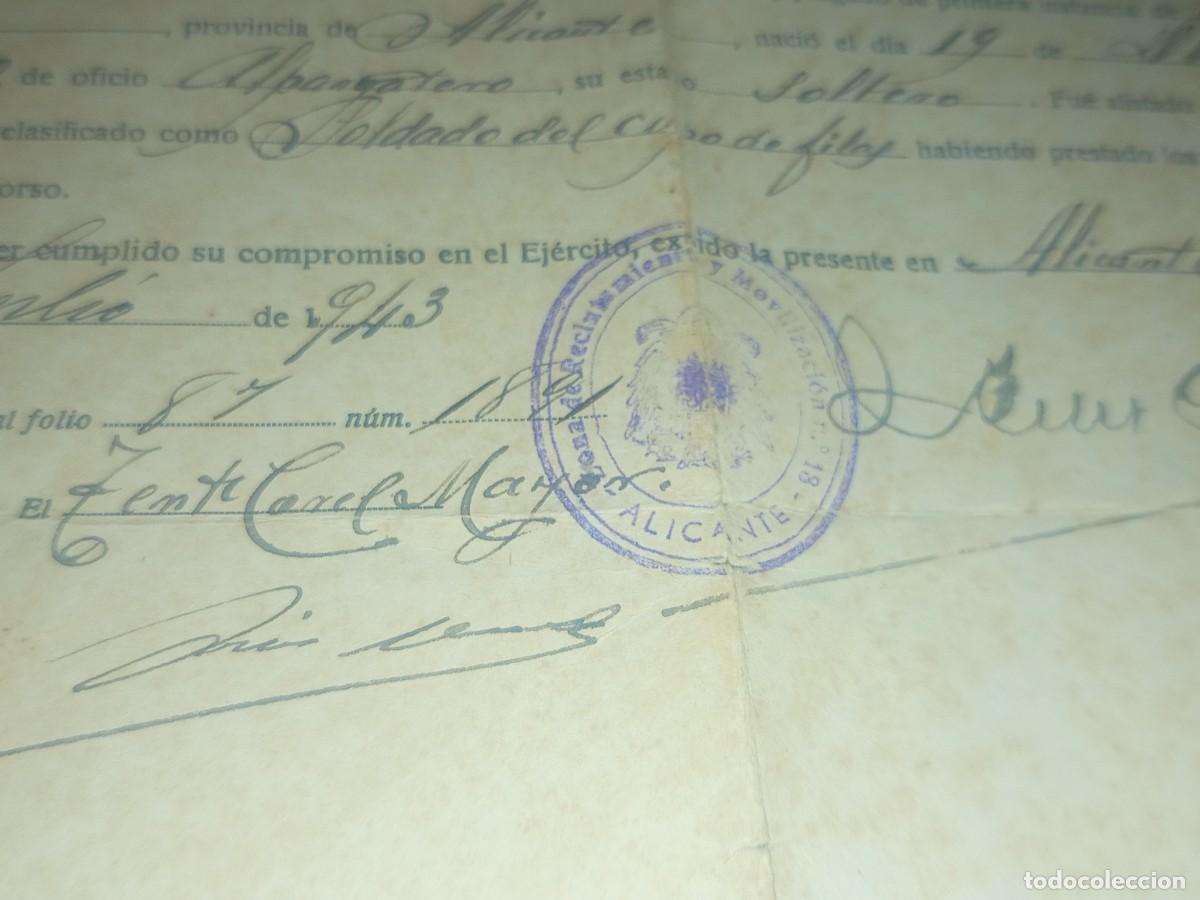 , provincia de Alicante, nació el día 19 de
de oficio Alpargatero, su estado soltero. Fué alistado
clasificado como Soldado del cupo de filas habiendo prestado los
orso.
er cumplido su compromiso en el Ejército, expido la presente en Alicante
de 1943
al folio 87 núm. 1891
El Tente Corel Mayor.
Zona de Reclutamiento y Movilización n.º 18 - ALICANTE -
todocoleccion